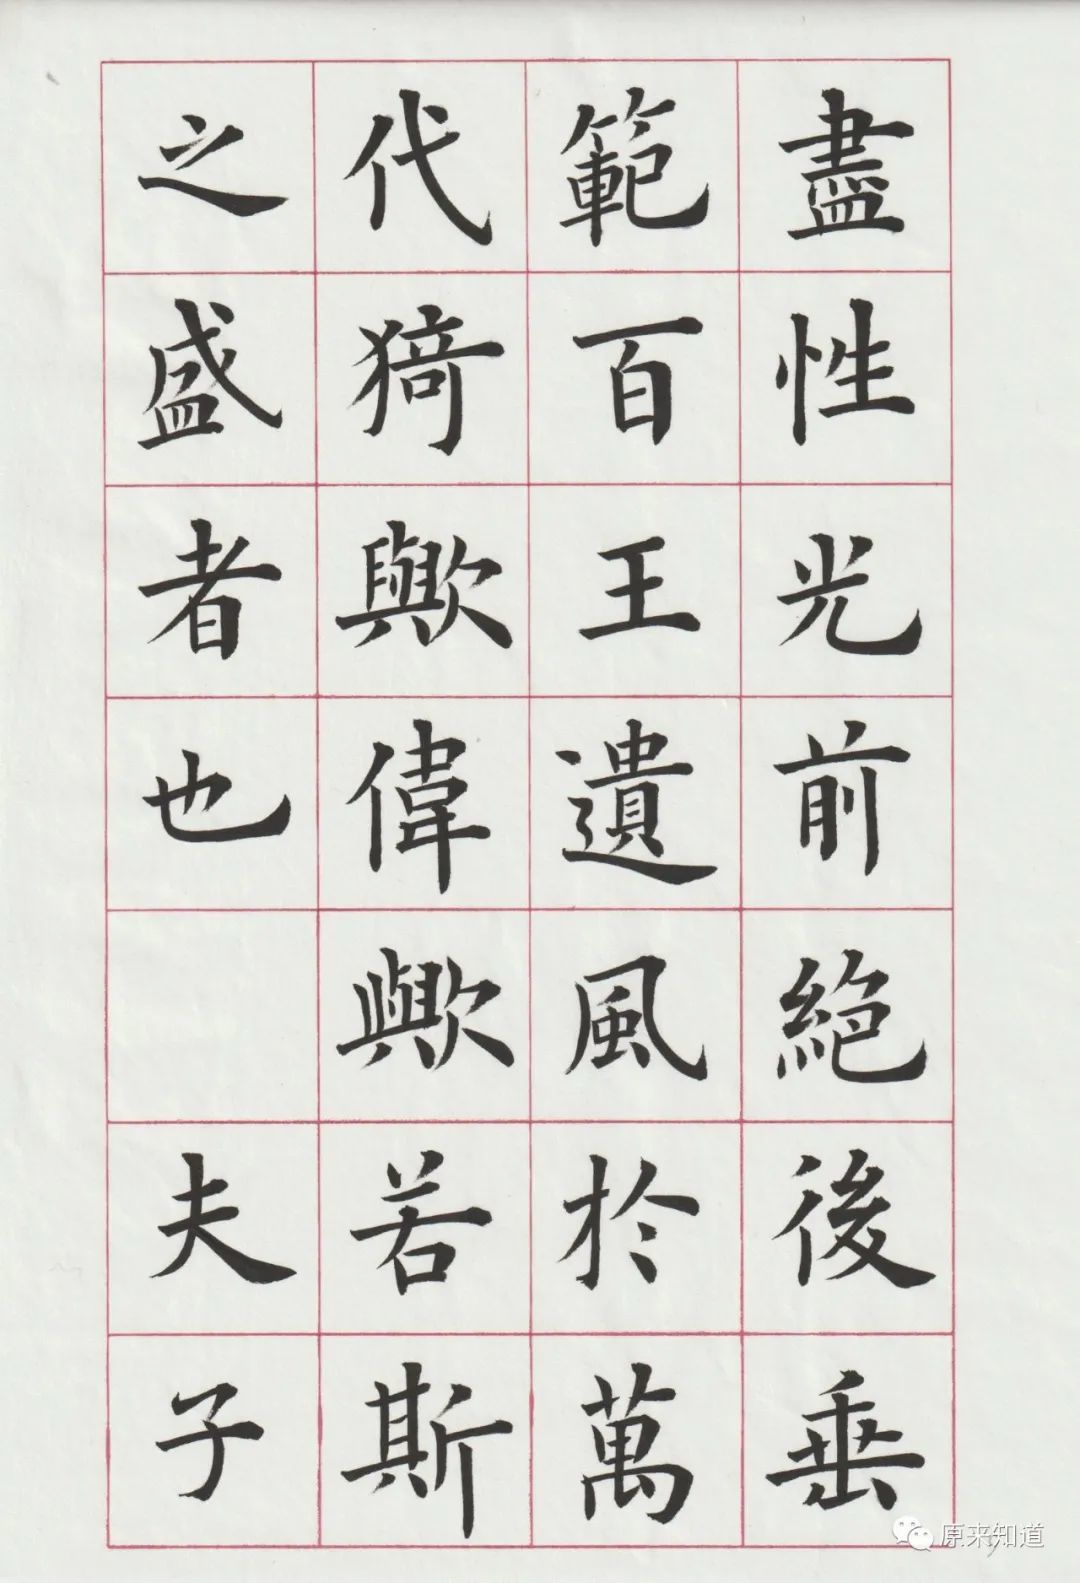 盡性光前絶後垂
範百王遺風於萬
代猗歟偉歟若斯
之盛者也 夫子
原来知道